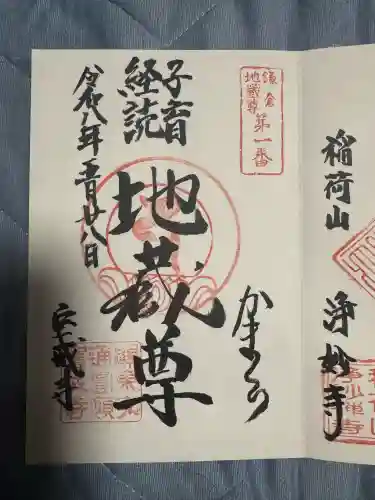 稲荷山
浄妙寺
鎌倉
地蔵尊
第一番
かまくら
子育
経読
地蔵尊
令和八年三月廿八日
宝戒寺